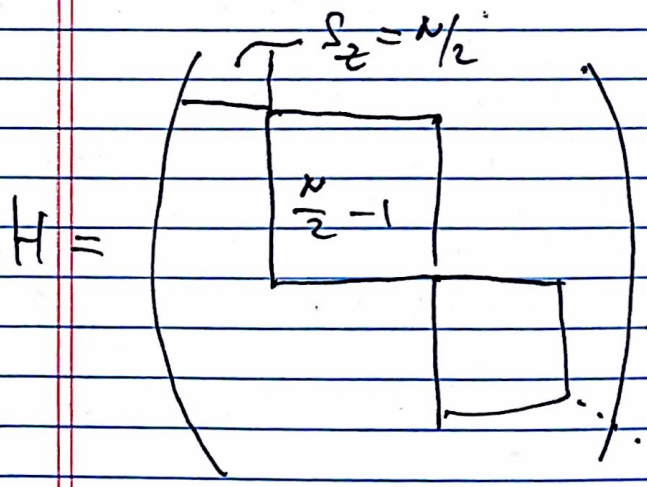 S_z = N/2
N/2 - 1
H =